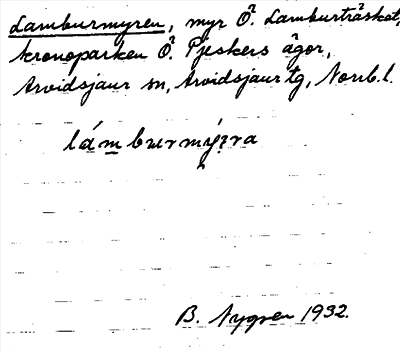 Lamburmyren, myr Ö. Lamburträsket,
kronoparken Ö. Pjeskers ägor,
Arvidsjaur sn, Arvidsjaur tg, Norrb. l.
lámburmýrra
B. Nygren 1932.